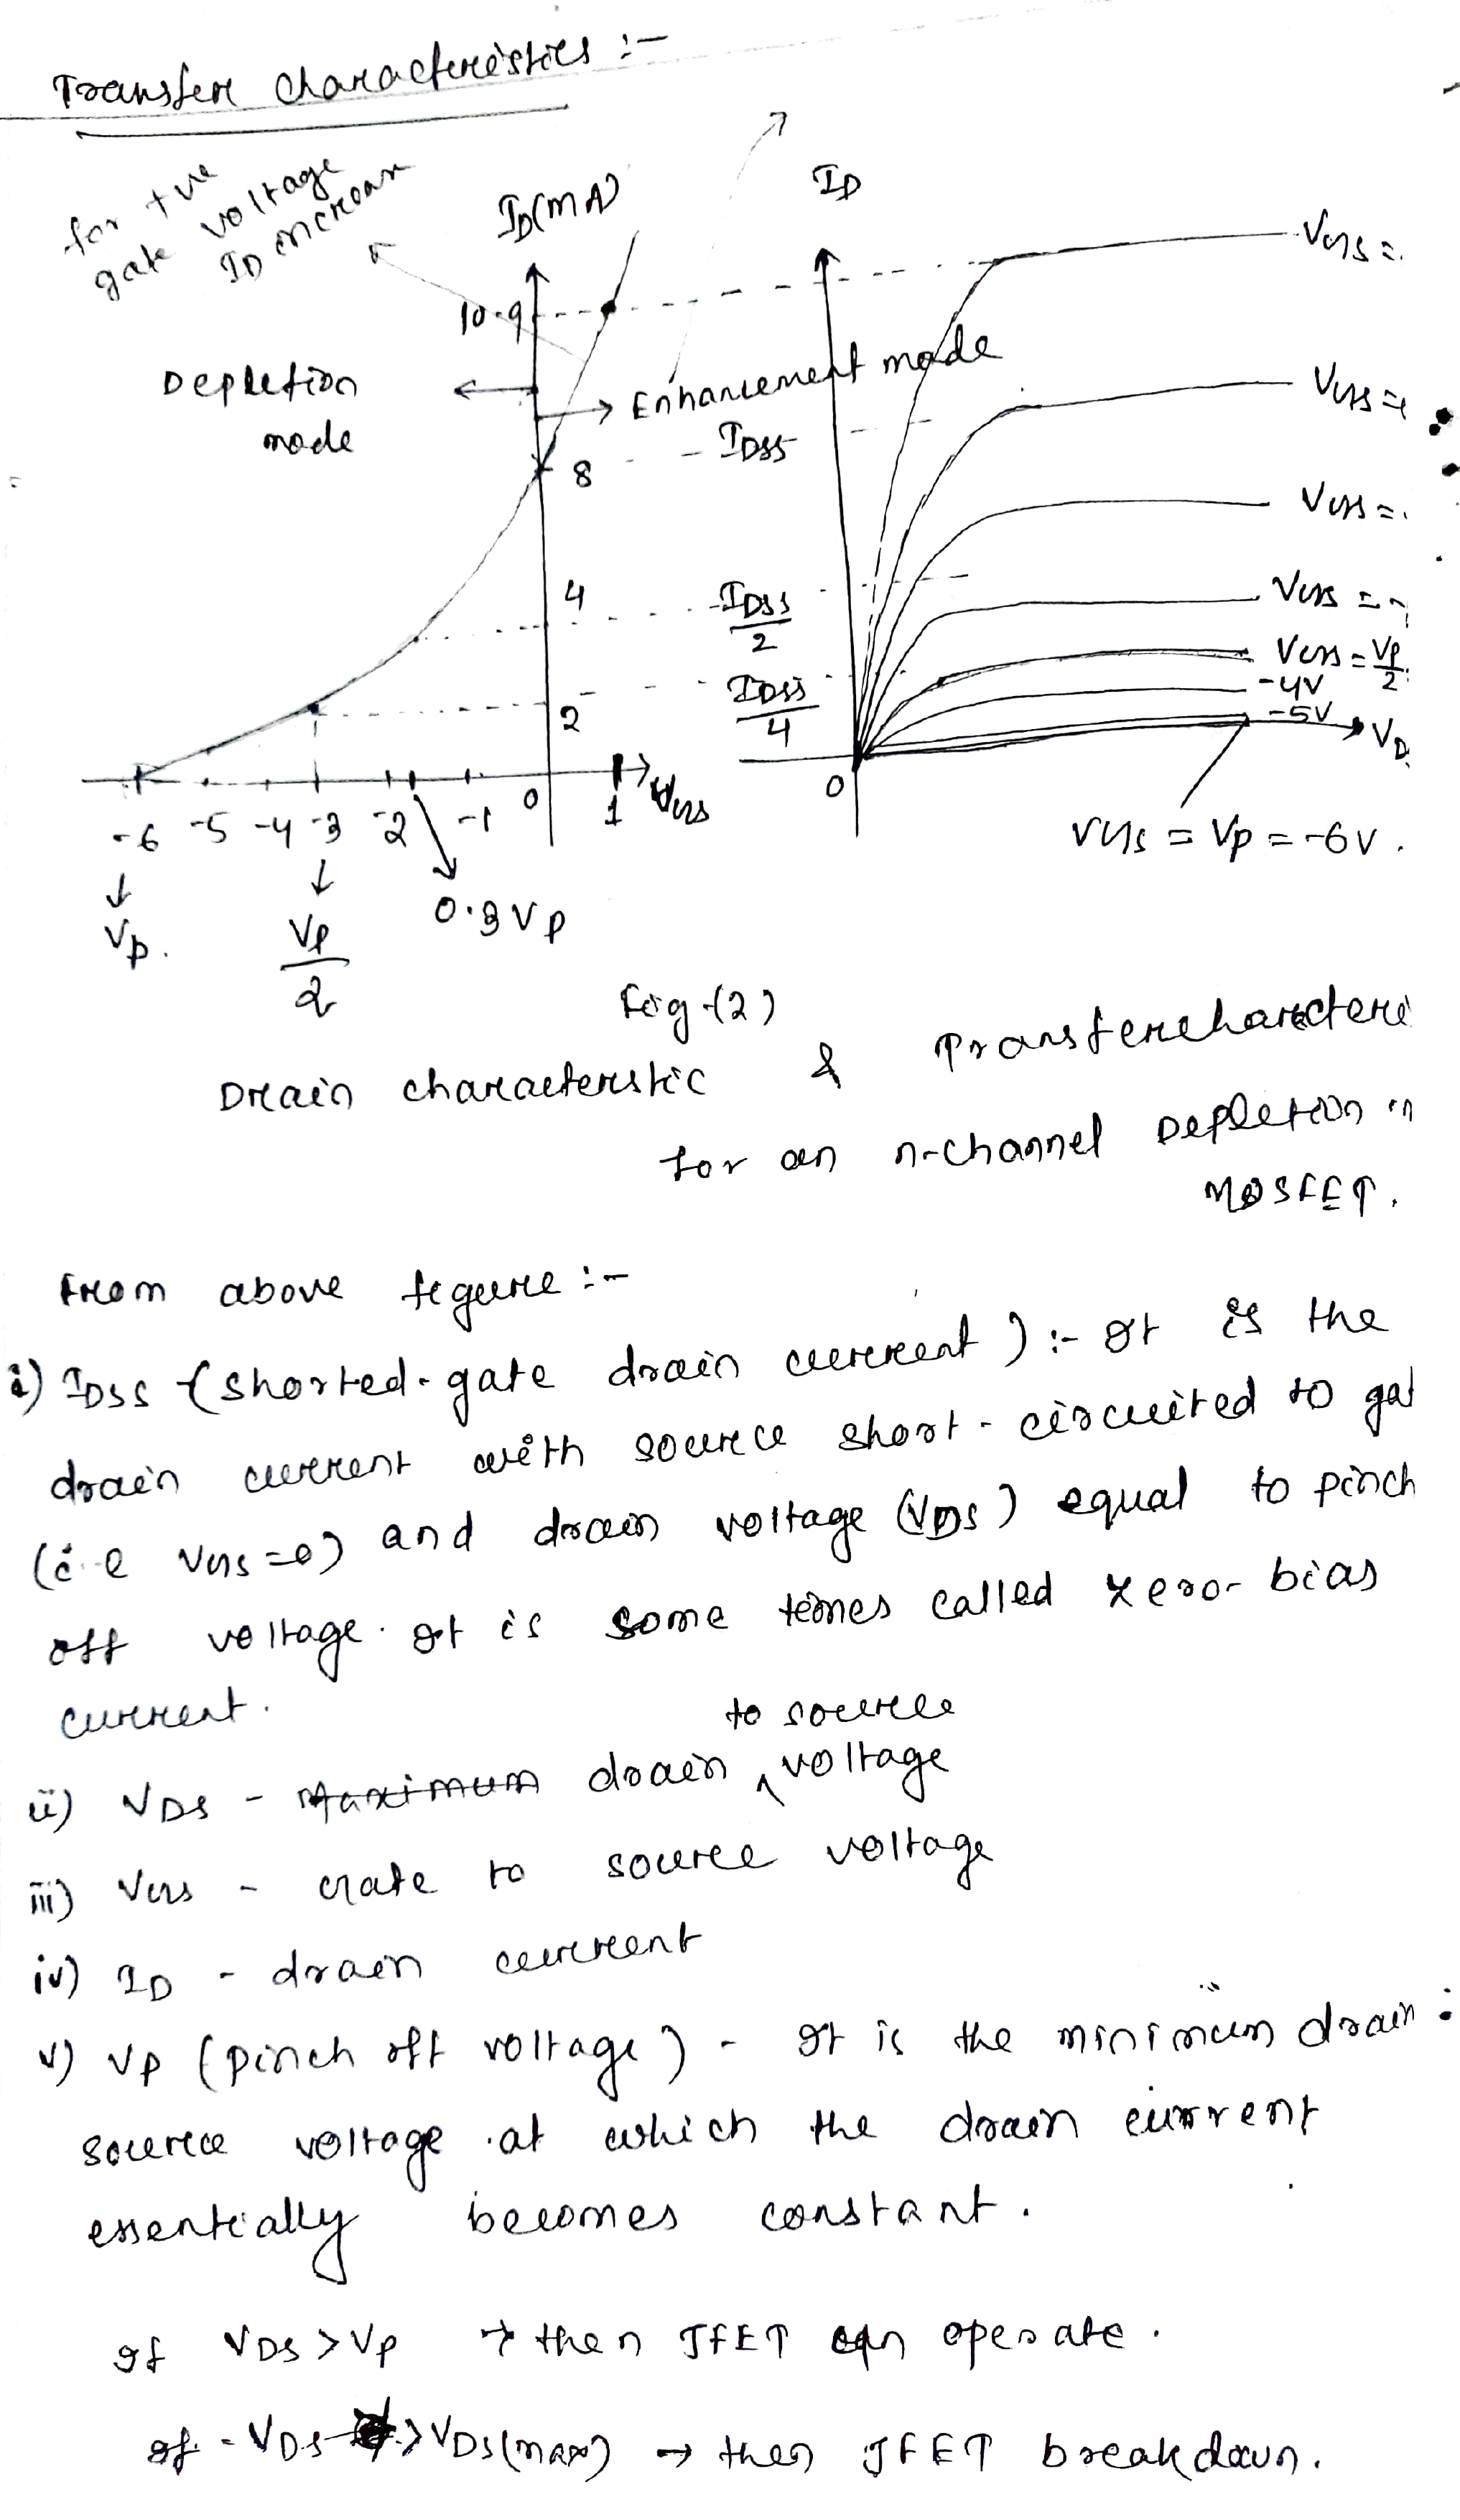 Transfer Characteristics :-
for +ve
gate voltage
ID increase
ID(mA)
ID
VGS =
10.9
Depletion
mode
Enhancement mode
VGS =
IDSS
8
VGS =
4
IDSS/2
VGS = -
VGS = VP/2
-4V
IDSS/4
-5V
2
VD
0
0
-6 -5 -4 -3 -2 -1 1 VGS
VGS = VP = -6V.
VP.
VP/2
0.3VP
Fig-(2)
Drain characteristic & Transfercharacteri
for an n-channel Depletion
MOSFET.
From above figure :-
i) IDSS (shorted-gate drain current) :- It is the
drain current with source short-circuited to gat
(i.e VGS=0) and drain voltage (VDS) equal to pinch
off voltage. It is some times called zero-bias
current.
to source
ii) VDS - Maximum drain ^ voltage
iii) VGS - Gate to source voltage
iv) ID - drain current
v) VP (pinch off voltage) - It is the minimum drain
source voltage at which the drain current
essentially becomes constant.
If VDS > VP → then JFET can operate.
If VDS > VDS(max) → then JFET breakdown.